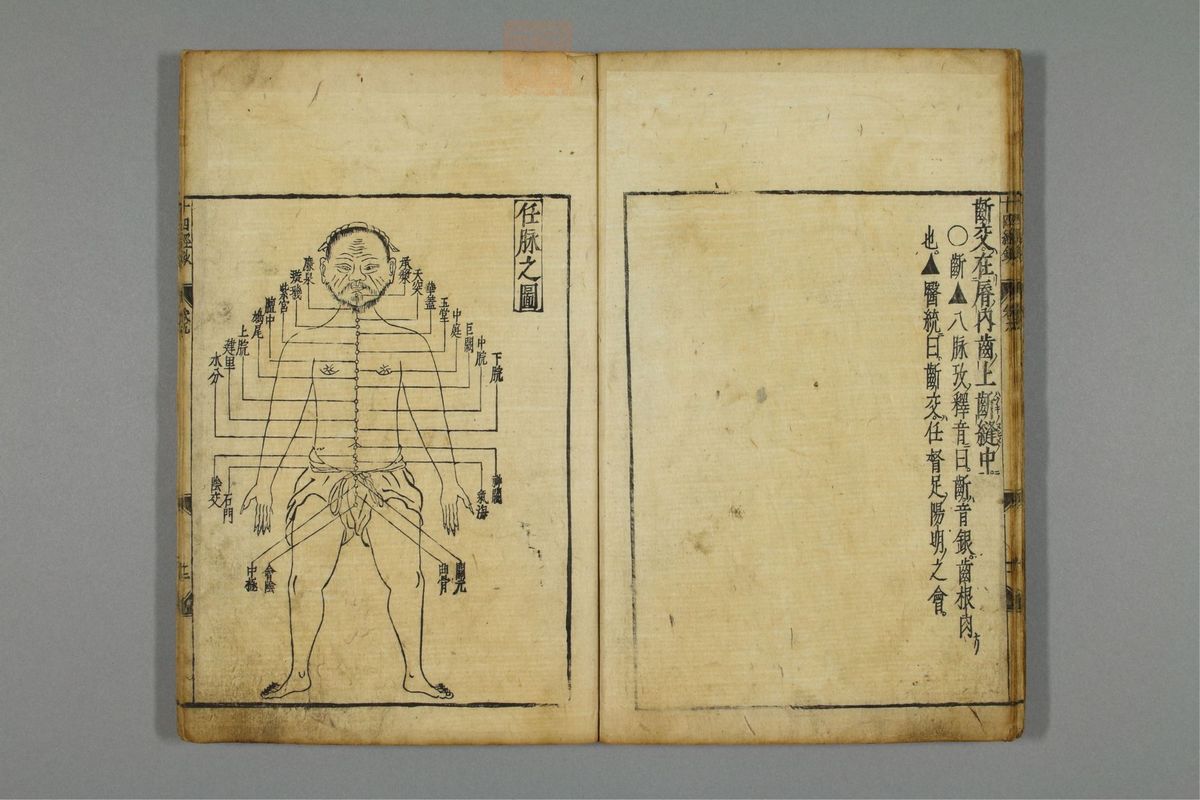 齗交在脣内齒上齗縫中
〇齗▲八脉攷釋音曰齗音銀齒根肉
也▲醫統曰齗交任督足陽明之會
任脉之圖
承漿
天突
華蓋
玉堂
中庭
巨闕
中脘
下脘
廉泉
璇璣
紫宮
膻中
鳩尾
上脘
建里
水分
神闕
氣海
陰交
石門
關元
曲骨
會陰
中極